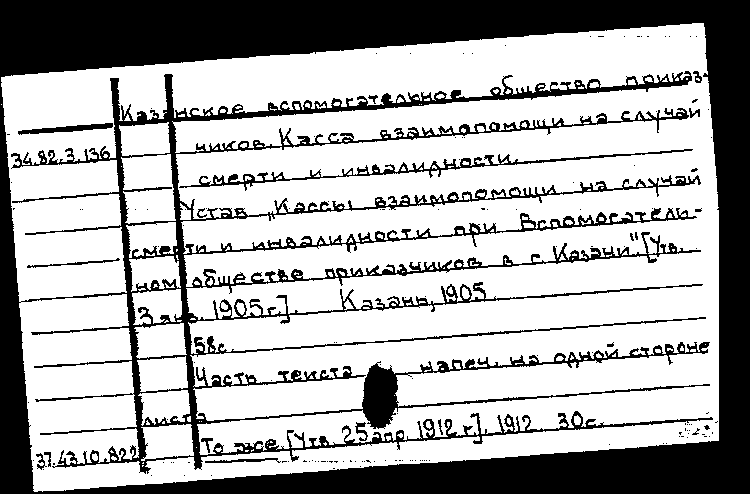 Казанское вспомогательное общество приказ-
34.82.3.136 чиков. Касса взаимопомощи на случай
смерти и инвалидности.
Устав „Кассы взаимопомощи на случай
смерти и инвалидности при Вспомогатель-
ном обществе приказчиков в г. Казани". [Утв.
3 янв. 1905 г.]. Казань, 1905.
58с.
Часть текста напеч. на одной стороне
листа
37.43.10.822 То же. [Утв. 25 апр. 1912 г.]. 1912. 30с.